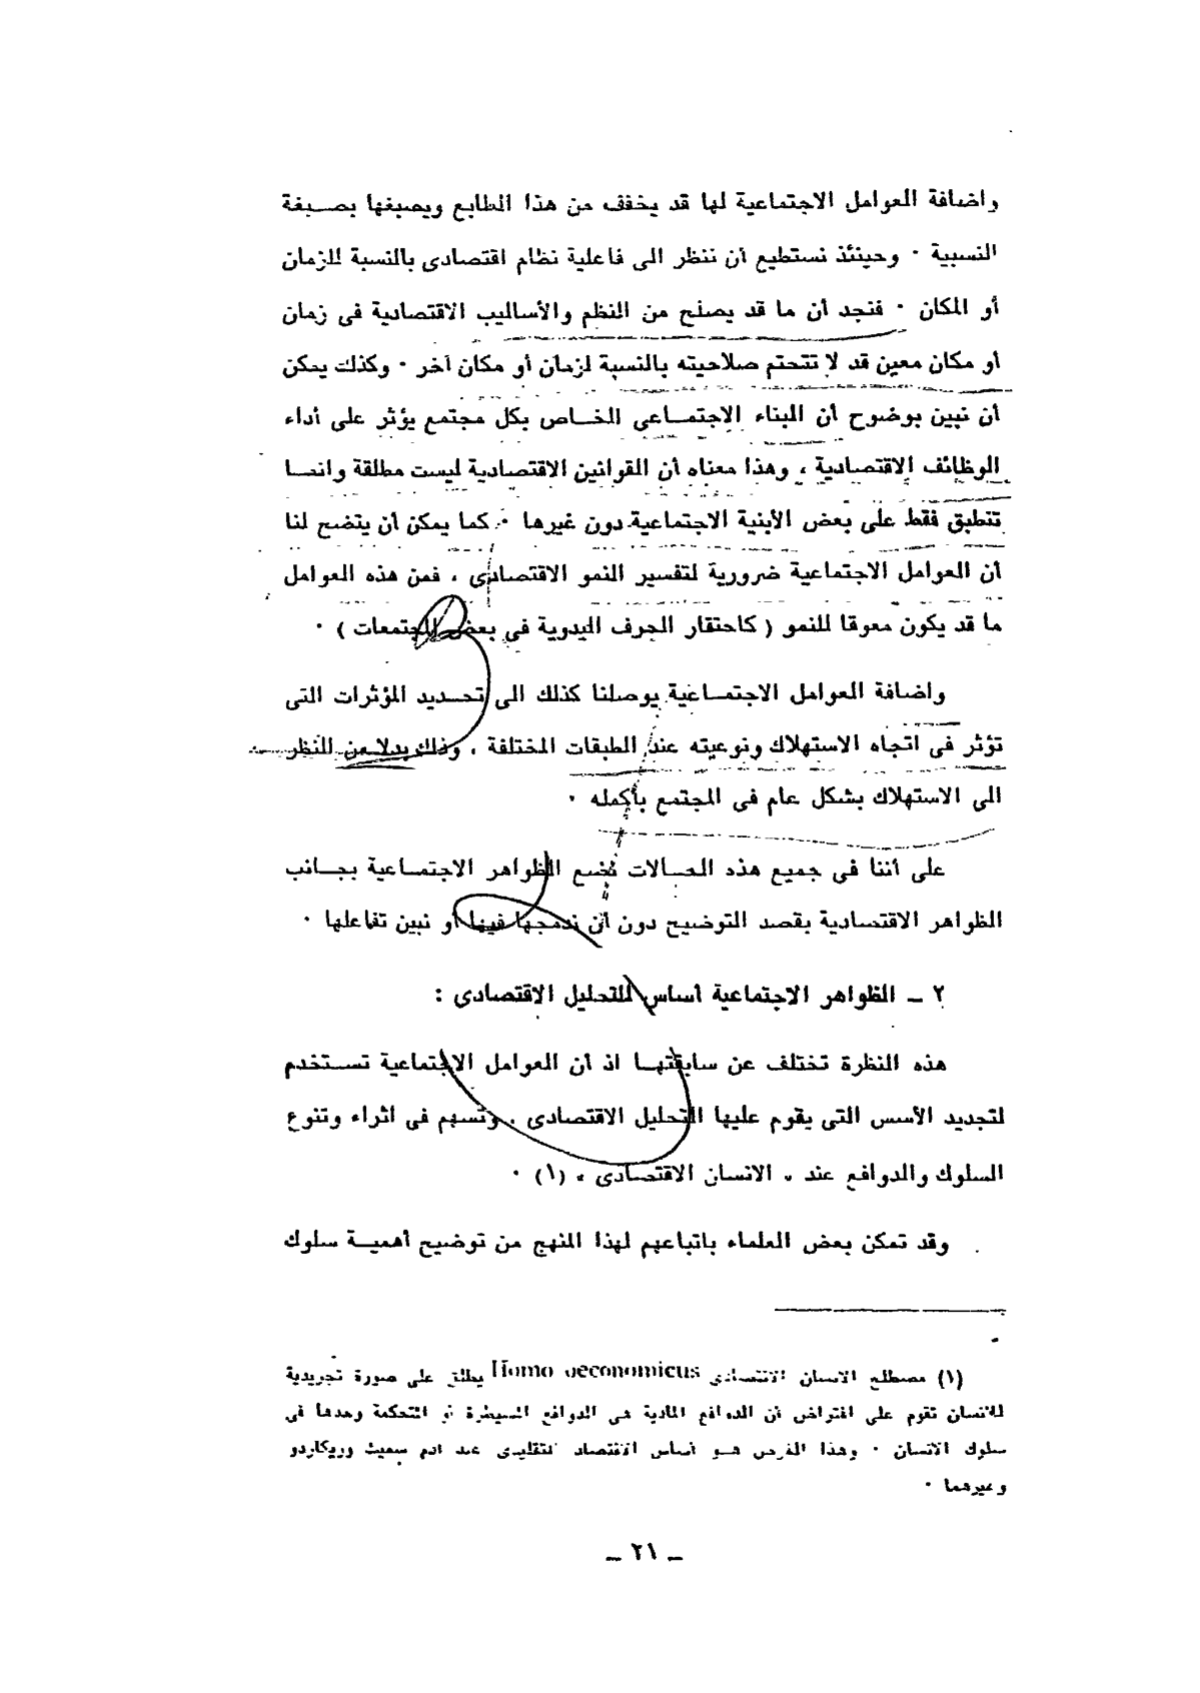 واضافة العوامل الاجتماعية لها قد يخفف من هذا الطابع ويصبغها بصـبغة
النسبية ٠ وحينئذ نستطيع أن ننظر الى فاعلية نظام اقتصادى بالنسبة للزمان
أو المكان ٠ فنجد أن ما قد يصلح من النظم والأساليب الاقتصادية فى زمان
أو مكان معين قد لا تتحتم صلاحيته بالنسبة لزمان أو مكان آخر ٠ وكذلك يمكن
أن نبين بوضوح أن البناء الاجتمـاعى الخـاص بكل مجتمع يؤثر على أداء
الوظائف الاقتصادية ، وهذا معناه أن القوانين الاقتصادية ليست مطلقة وانمـا
تنطبق فقط على بعض الأبنية الاجتماعية دون غيرها ٠ كما يمكن أن يتضح لنا
أن العوامل الاجتماعية ضرورية لتفسير النمو الاقتصادى ، فمن هذه العوامل
ما قد يكون معوقا للنمو ( كاحتقار الحرف اليدوية فى بعض المجتمعات ) ٠
واضافة العوامل الاجتمـاعية يوصلنا كذلك الى تحـديد المؤثرات التى
تؤثر فى اتجاه الاستهلاك ونوعيته عند الطبقات المختلفة ، وذلك بدلا من النظر
الى الاستهلاك بشكل عام فى المجتمع بأكمله ٠
على أننا فى جميع هذه الحـالات نضع الظواهر الاجتمـاعية بجـانب
الظواهر الاقتصادية بقصد التوضيح دون أن ندمجها فيها أو نبين تفاعلها ٠
٢ ـ الظواهر الاجتماعية أساس للتحليل الاقتصادى :
هذه النظرة تختلف عن سابقتهـا اذ أن العوامل الاجتماعية تسـتخدم
لتجديد الأسس التى يقوم عليها التحليل الاقتصادى ، وتسهم فى اثراء وتنوع
السلوك والدوافع عند « الانسان الاقتصادى » (١) ٠
وقد تمكن بعض العلماء باتباعهم لهذا المنهج من توضيح أهميـة سلوك
(١) مصطلح الانسان الاقتصادى Homo oeconomicus يطلق على صورة تجريدية
للانسان تقوم على افتراض أن الدوافع المادية هى الدوافع المسيطرة أو المتحكمة وحدها فى
سلوك الانسان ٠ وهذا الفرض هـو أساس الاقتصاد التقليدى عند آدم سميث وريكاردو
وغيرهما ٠
ـ ٢١ ـ